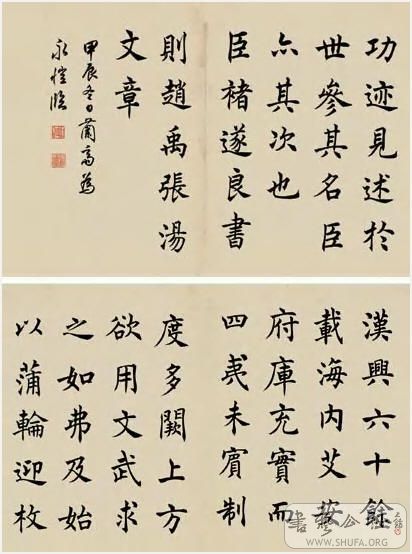 功迹見述於
世參其名臣
亦其次也
臣褚遂良書
則趙禹張湯
文章
甲辰冬日
永愷臨
漢興六十餘
載海內艾安
府庫充實而
四夷未賓制
度多闕上方
欲用文武求
之如弗及始
以蒲輪迎枚
WWW.SHUFA.ORG